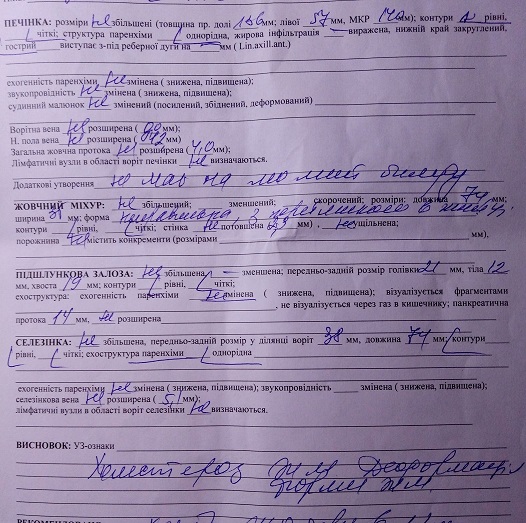 ПЕЧІНКА: розміри не збільшені (товщина пр. долі мм; лівої 57 мм, МКР 140 мм); контури рівні,
чіткі; структура паренхіми однорідна, жирова інфільтрація — виражена, нижній край закруглений,
гострий виступає з-під реберної дуги на мм ( Lin.axill.ant.)
ехогенність паренхіми не змінена ( знижена, підвищена);
звукопровідність не змінена ( знижена, підвищена);
судинний малюнок не змінений (посилений, збіднений, деформований)
Ворітна вена не розширена ( мм);
Н. пола вена не розширена ( мм)
Загальна жовчна протока не розширена ( 4,0 мм);
Лімфатичні вузли в області воріт печінки не визначаються.
Додаткові утворення не має на момент огляду
ЖОВЧНИЙ МІХУР: не збільшений; зменшений; скорочений; розміри: довжина 74 мм;
ширина 31 мм; форма з перетинкою в
контури рівні, чіткі; стінка не потовщена ( мм) , не ущільнена;
порожнина не містить конкременти (розмірами мм),
ПІДШЛУНКОВА ЗАЛОЗА: не збільшена, — зменшена; передньо-задній розмір голівки 21 мм, тіла 12
мм, хвоста 19 мм; контури рівні, чіткі;
ехоструктура: ехогенність паренхіми не змінена ( знижена, підвищена); візуалізується фрагментами
, не візуалізується через газ в кишечнику; панкреатична
протока 1,4 мм, не розширена
СЕЛЕЗІНКА: не збільшена, передньо-задній розмір у ділянці воріт 38 мм, довжина 74 мм; контури
рівні, чіткі; ехоструктура паренхіми однорідна
ехогенність паренхіми не змінена ( знижена, підвищена); звукопровідність змінена ( знижена, підвищена);
селезінкова вена не розширена ( 5,1 мм);
лімфатичні вузли в області воріт селезінки не визначаються.
ВИСНОВОК: УЗ-ознаки
Холестероз ЖМ Деформація
форми ЖМ